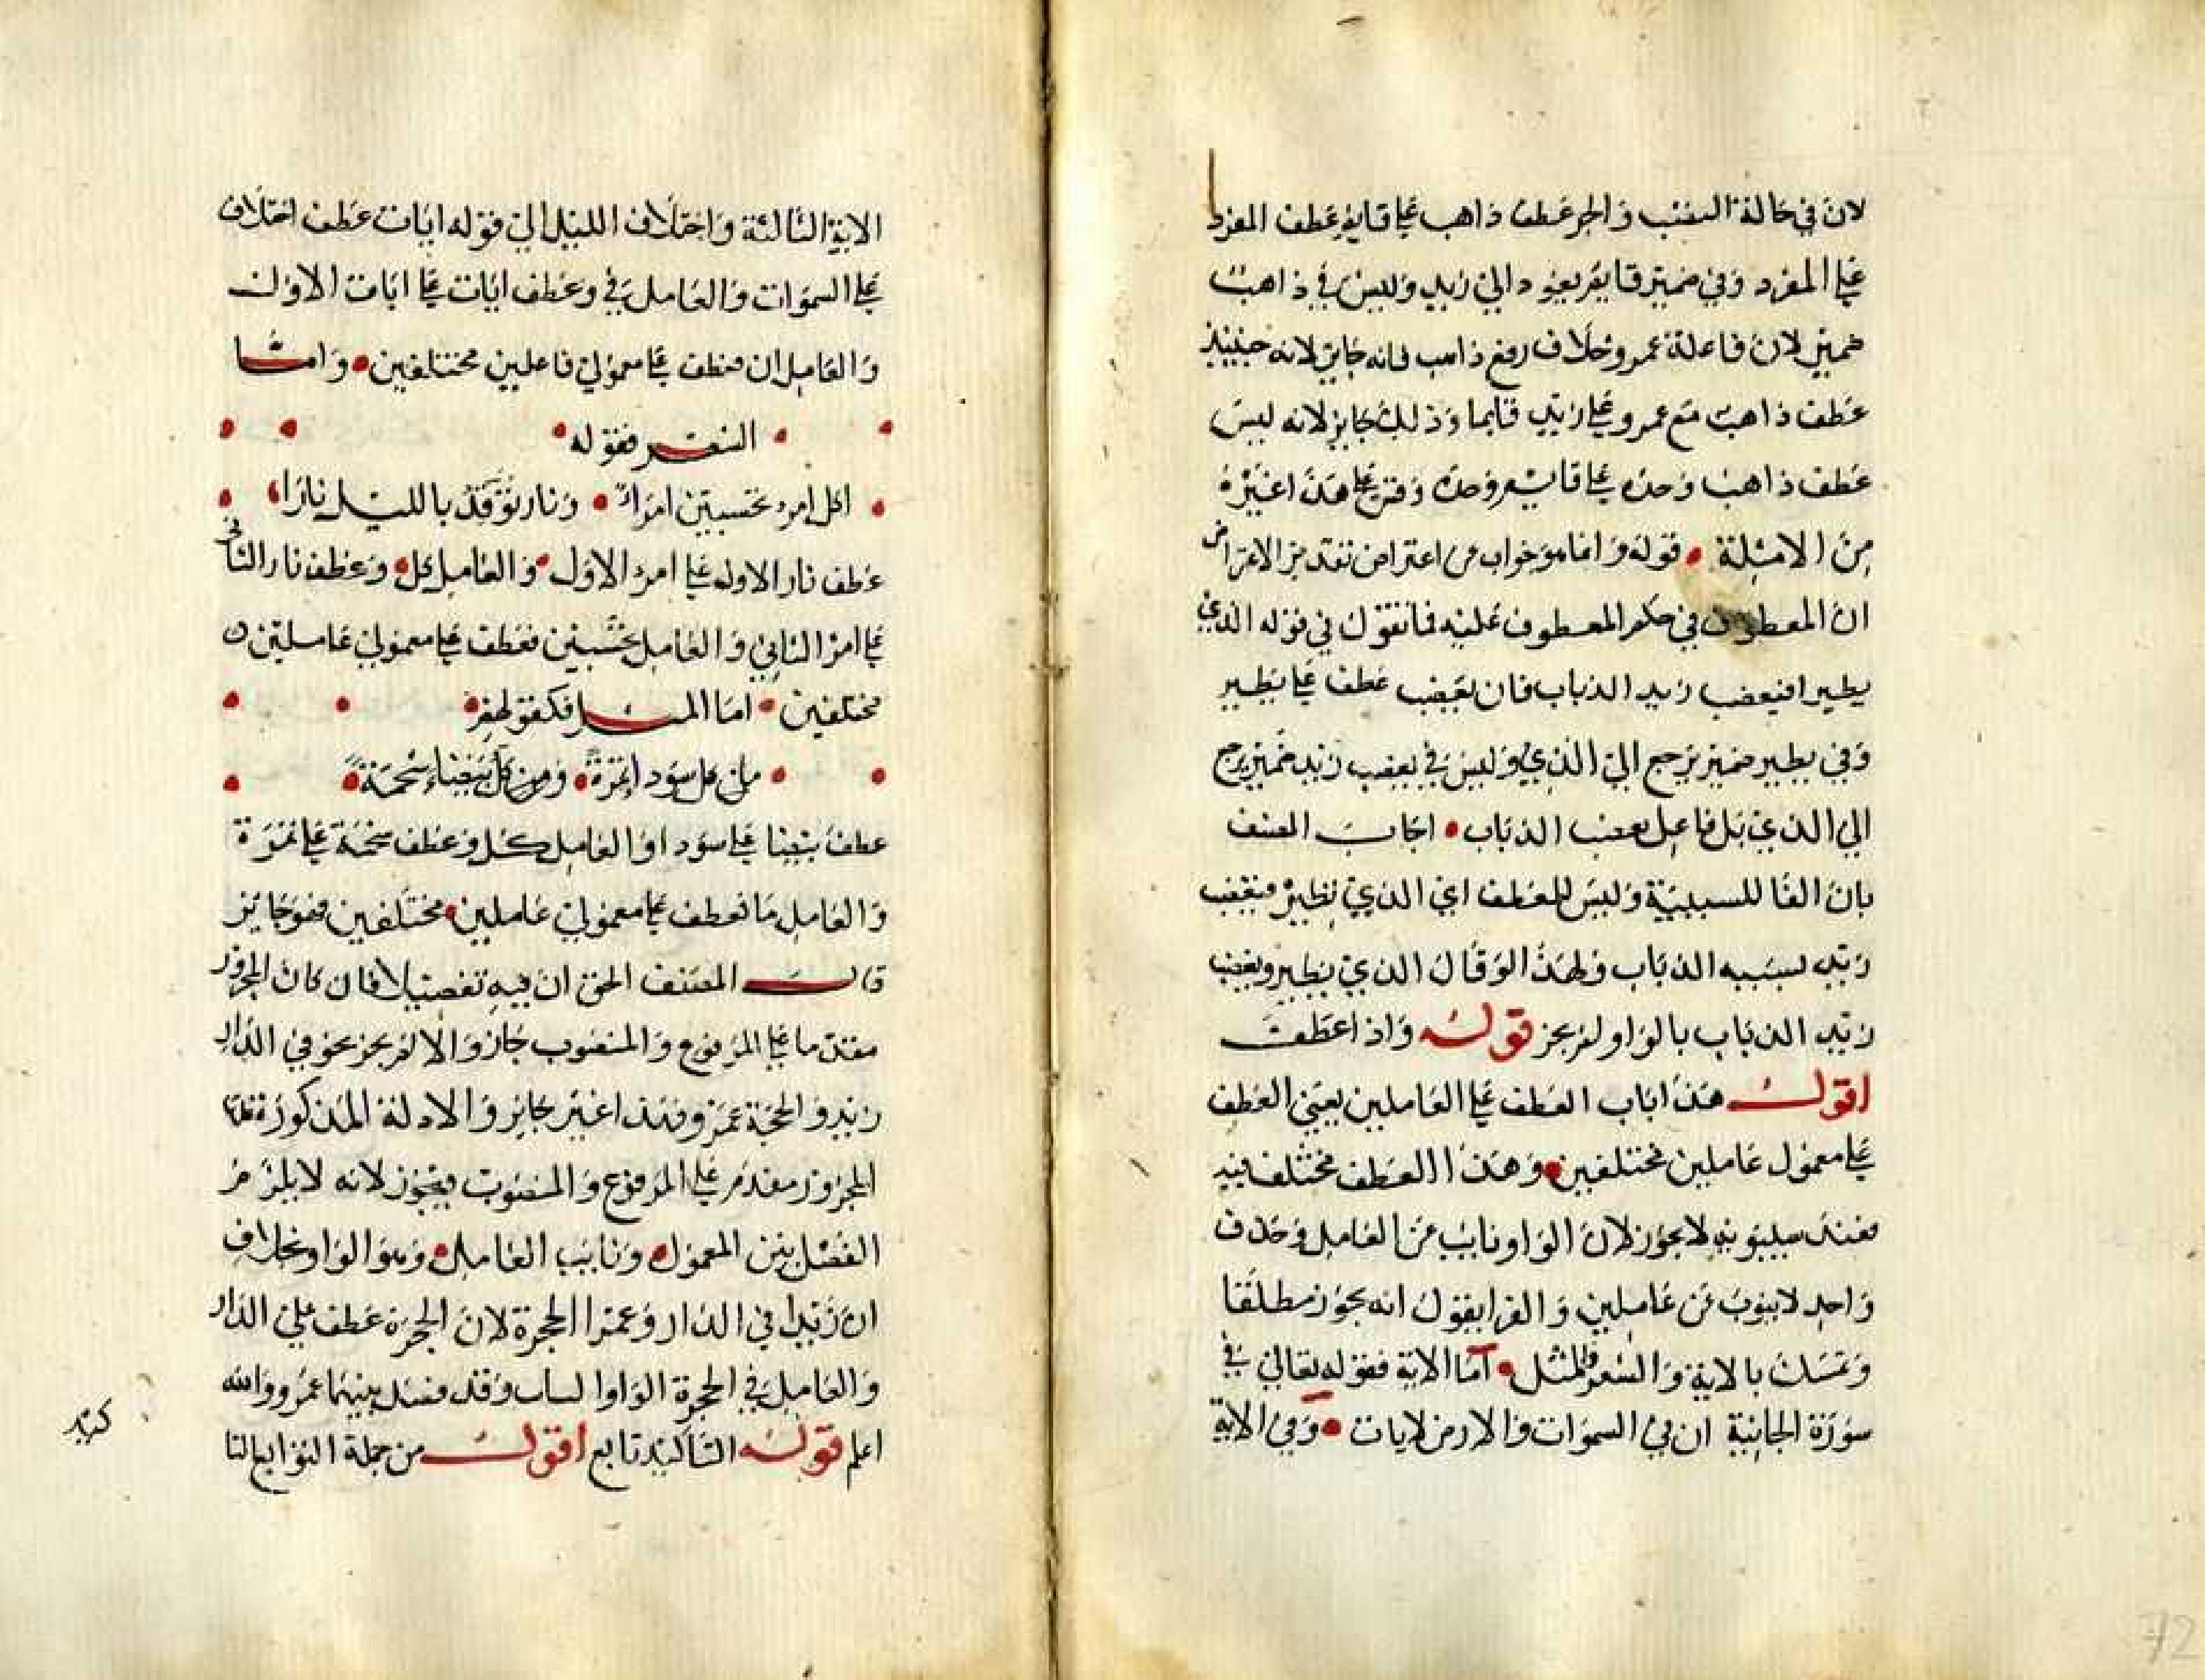 لان في حالة النصب والجر عطف ذاهب على قايم عطف المفرد
على المفرد وفي ضمير قايم يعود الى زيد وليس في ذاهب
ضمير لان فاعلة عمرو خلاف رفع ذاهب فانه جايز لانه حينيذ
عطف ذاهب مع عمرو على زيد قايما وذلك جايز لانه ليس
عطف ذاهب وحده على قايم وحده وقس على هذا غيره
من الامثلة قوله وانما هو جواب عن اعتراض تقدير الاعتراض
ان المعطوف في حكم المعطوف عليه فما نقول في قوله الذي
يطير افيغضب زيد الذباب فان يغضب عطف على يطير
وفي يطير ضمير يرجع الى الذي وليس في يغضب زيد ضمير يرجع
الي الذي بل فاعل يغضب الذباب اجاب المصنف
بان الفا للسببية وليس للعطف اي الذي يطير فيغضب
زيد بسببه الذباب ولهذا لو قال الذي يطير ويغضب
زيد الذباب بالواو لم يجز قوله واذا عطفت
اقول هذا باب العطف على العاملين يعني العطف
على معمول عاملين مختلفين وهذا العطف مختلف فيه
فعند سيبويه لا يجوز لان الواو نايب عن العامل وحذف
واحد لا ينوب عن عاملين والفرا يقول انه يجوز مطلقا
وتمسك بالاية والشعر والمثل اما الاية فقوله تعالى في
سورة الجاثية ان في السموات والارض لايات وفي الاية
الاية الثالثة واختلاف الليل الي قوله ايات عطف اختلاف
على السموات والعامل في وعطف ايات على ايات الاول
والعامل ان فعطف على معمولي فاعلين مختلفين واما
الشعر فقوله
اكل امرء تحسبين امراء ونار توقد بالليل نارا
عطف نار الاوله على امرء الاول والعامل كل وعطف نار الثاني
على امرا الثاني والعامل تحسبين فعطف على معمولي عاملين
مختلفين اما المثل فكقولهم
ما كل سودا تمرة ومن كل بيضاء شحمة
عطف بيضا على سودا والعامل كل وعطف شحمة على تمرة
والعامل ما فعطف على معمولي عاملين مختلفين فهو جايز
قال المصنف الحق ان فيه تفصيلا فان كان المجرور
مقدما على المرفوع والمنصوب جاز والا لم يجز نحو في الدار
زيد والحجة عمرو وهذا غير جايز والادلة المذكورة
المجرور مقدم على المرفوع والمنصوب فيجوز لانه لا يلزم
الفصل بين المعمول ونايب العامل وهو الواو بخلاف
ان زيدا في الدار وعمرا الحجرة لان الحجرة عطف على الدار
والعامل في الحجرة الواو وقد فصل بينهما عمرو والله
اعلم قوله التاكيد تابع اقول من جملة التوابع التا
كيد
72